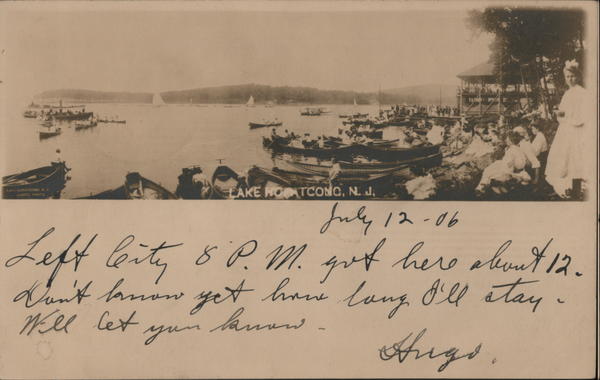 LAKE HOPATCONG, N.J.
July 12-06
Left City 8 P.M. got here about 12.
Don't know yet how long I'll stay.
Will let you know.
Hugo.